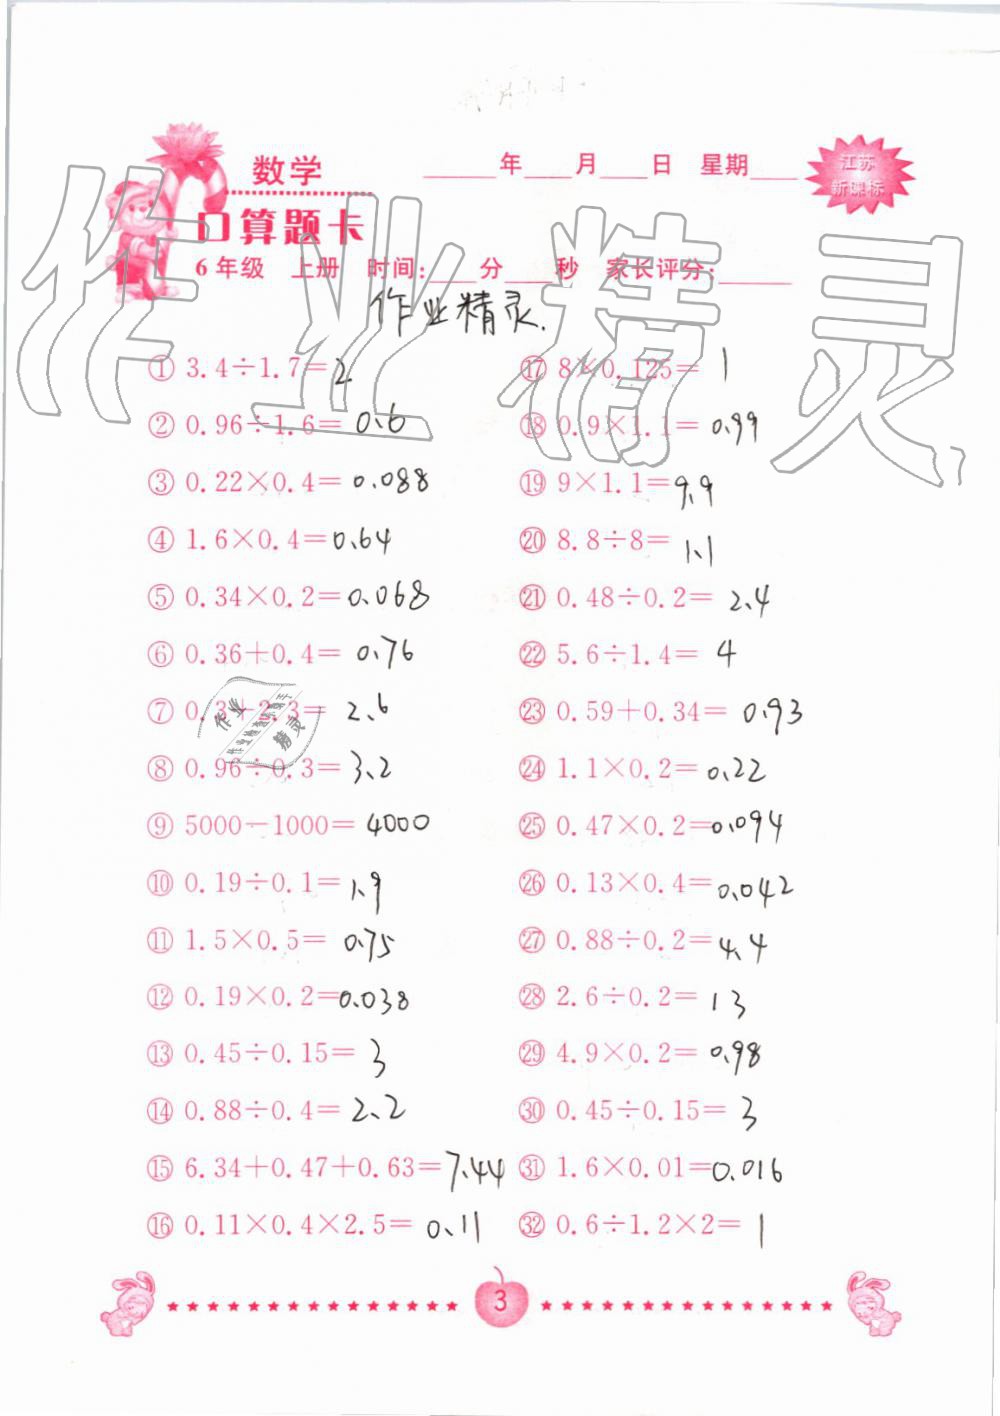 江苏
新课标
数学 ____年____月____日 星期____
口算题卡
6年级 上册 时间:____分____秒 家长评分:____
作业精灵.
① 3.4÷1.7=2
② 0.96÷1.6=0.6
③ 0.22×0.4=0.088
④ 1.6×0.4=0.64
⑤ 0.34×0.2=0.068
⑥ 0.36+0.4=0.76
⑦ 2.3= 2.6
⑧ 0.96÷0.3=3.2
⑨ 5000-1000=4000
⑩ 0.19÷0.1=1.9
⑪ 1.5×0.5=0.75
⑫ 0.19×0.2=0.038
⑬ 0.45÷0.15=3
⑭ 0.88÷0.4=2.2
⑮ 6.34+0.47+0.63=7.44
⑯ 0.11×0.4×2.5=0.11
⑰ 8×0.125=1
⑱ 0.9×1.1=0.99
⑲ 9×1.1=9.9
⑳ 8.8÷8=1.1
㉑ 0.48÷0.2=2.4
㉒ 5.6÷1.4=4
㉓ 0.59+0.34=0.93
㉔ 1.1×0.2=0.22
㉕ 0.47×0.2=0.094
㉖ 0.13×0.4=0.042
㉗ 0.88÷0.2=4.4
㉘ 2.6÷0.2=13
㉙ 4.9×0.2=0.98
㉚ 0.45÷0.15=3
㉛ 1.6×0.01=0.016
㉜ 0.6÷1.2×2=1
3
作业精灵
作业
精灵